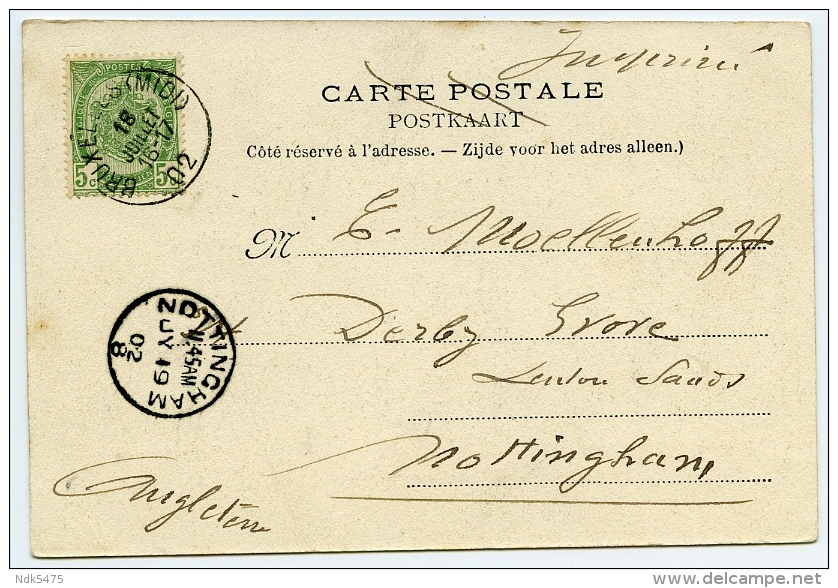 Imprimé
POSTES
5c 5c
BRUXELLES (MIDI)
18
JUILLET
16-17
02
CARTE POSTALE
POSTKAART
Côté réservé à l'adresse. — Zijde voor het adres alleen.)
M E- Moellenhoff
Derby Grove
Lenton Sands
Nottingham
Angleterre
NOTTINGHAM
11.45AM
JY 19
02
8
Ndk5475
www.delcampe.net